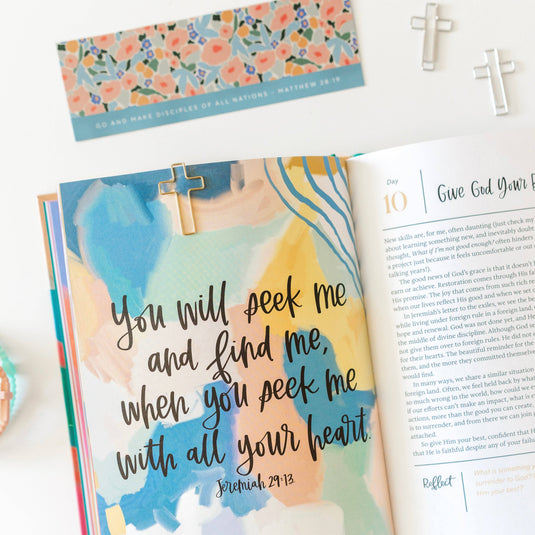 GO AND MAKE DISCIPLES OF ALL NATIONS - MATTHEW 28:19
You will seek me
and find me,
when you seek me
with all your heart.
Jeremiah 29:13
Day
10
Give God Your
New skills are, for me, often daunting (just check my
about learning something new, and inevitably doubt
thought, What if I'm not good enough? often hinders
a project just because it feels uncomfortable or out
talking years!).
The good news of God's grace is that it doesn't
earn or achieve. Restoration comes through His fa
His promise. The joy that comes from such rich re
when our lives reflect His glory and when we set o
In Jeremiah's letter to the exiles, we see the be
while living under foreign rule in a foreign land.
hope and renewal. God was not done yet, and He
the middle of divine discipline. Although God a
not give them over to foreign rulers. He did not
for their hearts. The beautiful reminder for the
them, and the more they committed themselve
would find.
In many ways, we share a similar situation
foreign land. Often, we feel held back by what
so much wrong in the world, how could we e
if our efforts can't make an impact, what is
actions, more than the good you can create,
is to surrender, and from there we can join
attached.
So give Him your best, confident that H
that He is faithful despite any of your fails
Reflect
What is something
surrender to God?
Him your best?